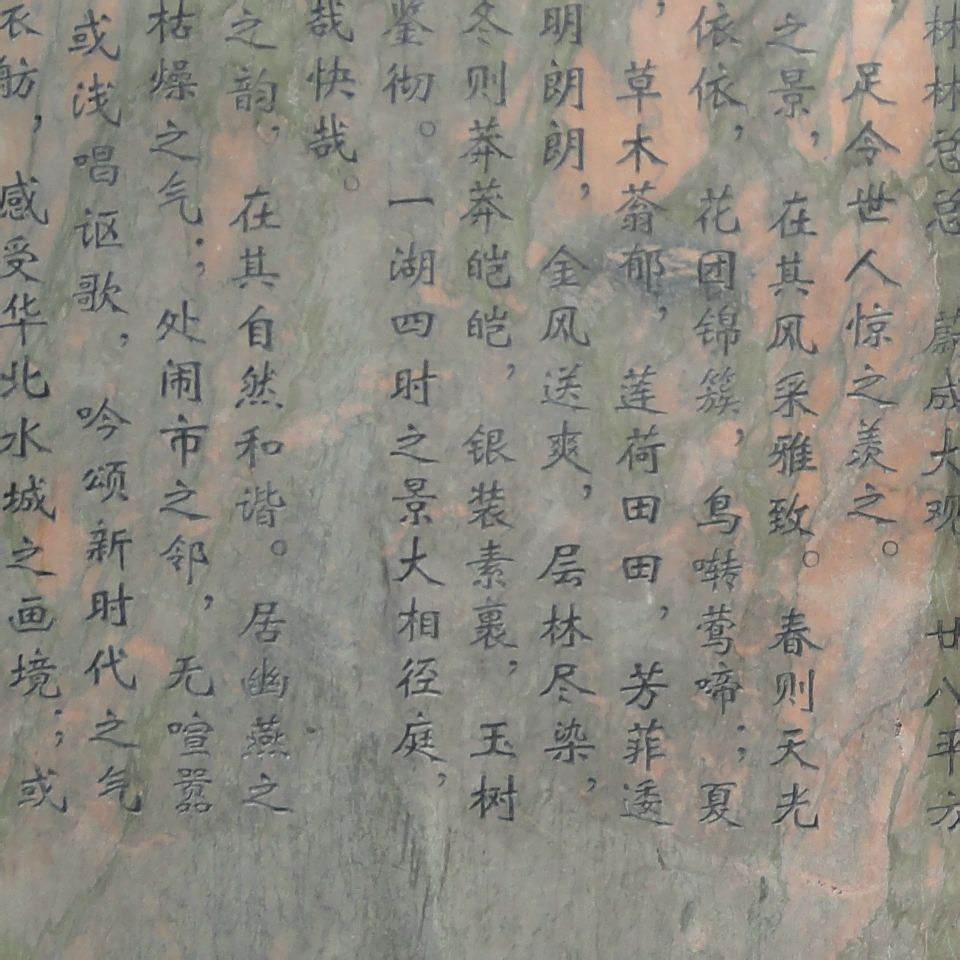 林林总总 蔚成大观 廿八平方
足令世人惊之羡之。
之景，在其风采雅致。春则天光
依依，花团锦簇，鸟啭莺啼；夏
，草木蓊郁，莲荷田田，芳菲逶
明朗朗，金风送爽，层林尽染，
冬则莽莽皑皑，银装素裹，玉树
鉴彻。一湖四时之景大相径庭，
哉快哉。
之韵，在其自然和谐。居幽燕之
枯燥之气；处闹市之邻，无喧嚣
或浅唱讴歌，吟颂新时代之气
舫，感受华北水城之画境；或